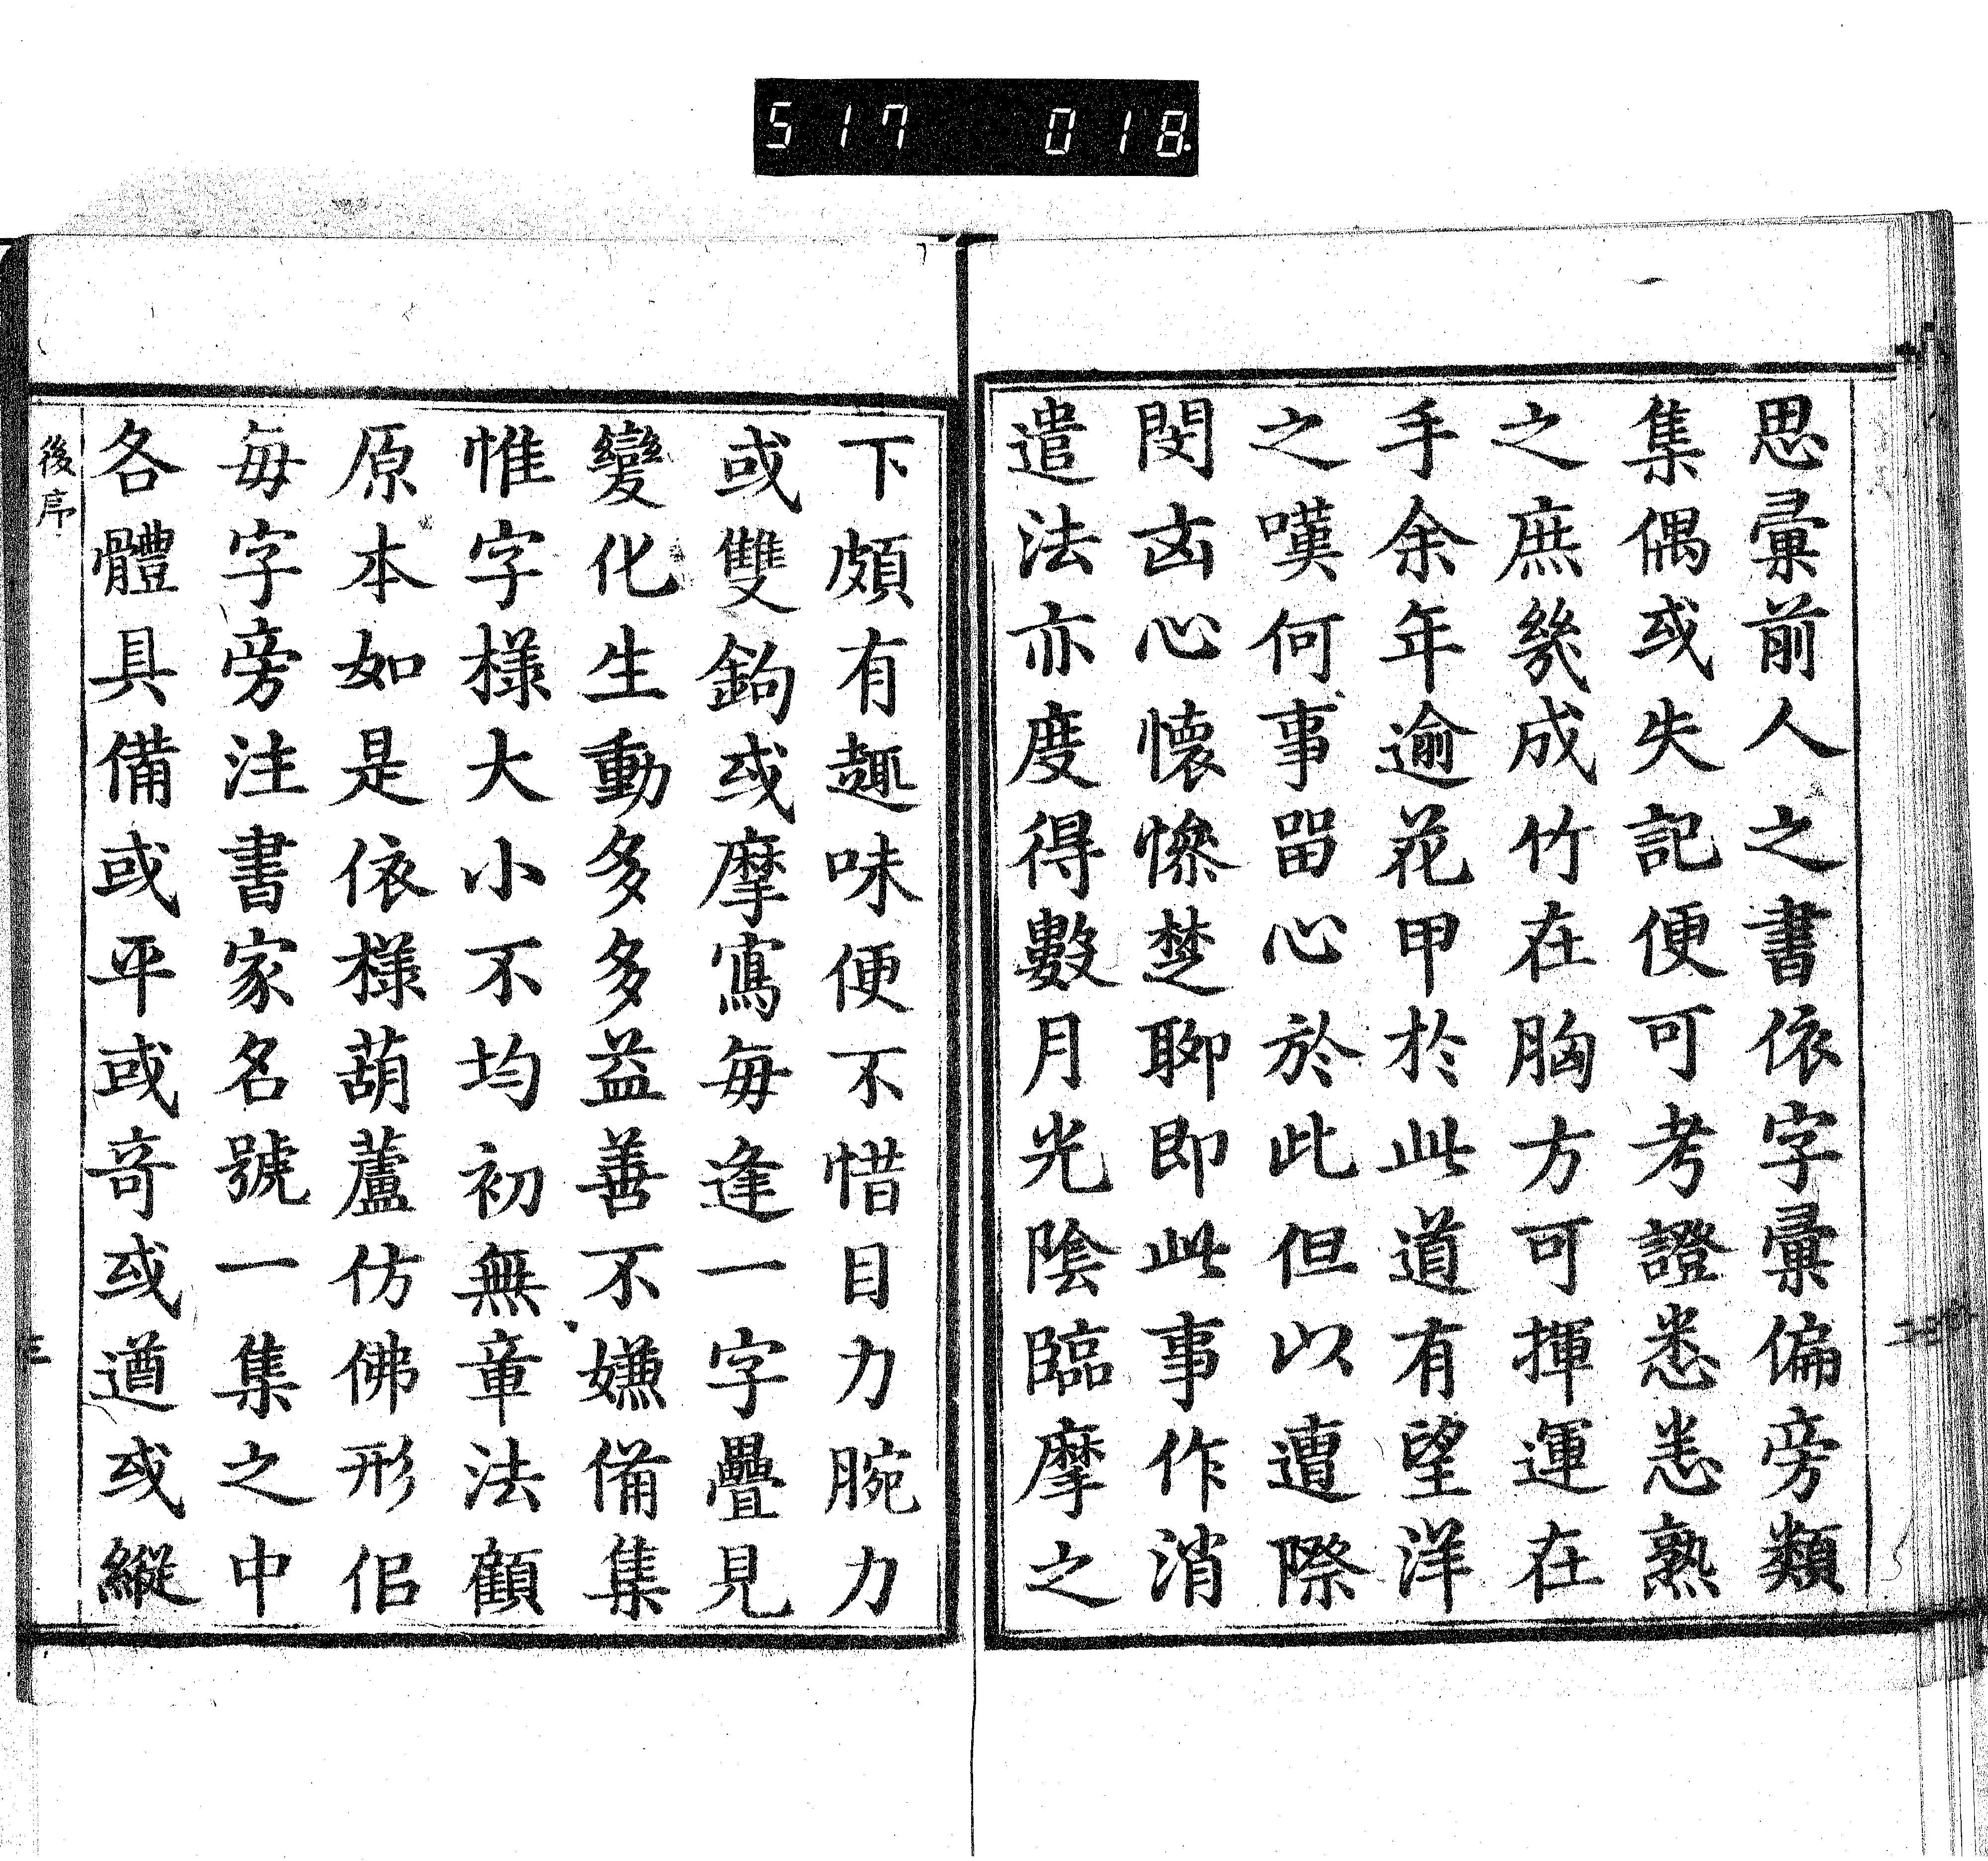 517 018
思彙前人之書依字彙偏旁類
集偶或失記便可考證悉悉熟
之庶幾成竹在胸方可揮運在
手余年逾花甲於此道有望洋
之嘆何事畱心於此但以遭際
閔凶心懷慘楚聊即此事作消
遣法亦度得數月光陰臨摩之
下頗有趣味便不惜目力腕力
或雙鉤或摩寫每逢一字疊見
變化生動多多益善不嫌備集
惟字樣大小不均初無章法顧
原本如是依樣葫蘆仿佛形似
每字旁注書家名號一集之中
各體具備或平或奇或遒或縱
後序
三